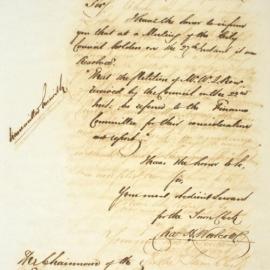 Sir,
I have the honor to inform
you that at a Meeting of the City
Council holden on the 29th Instant it was
Resolved.
"That the Petition of Mr Wm
received by the Council on the 22nd
Inst. be referred to the Finance
Committee for their consideration
and report."
I have the honor to be,
Sir,
Your most obedient Servant
for the Town Clerk
The Chairman of the